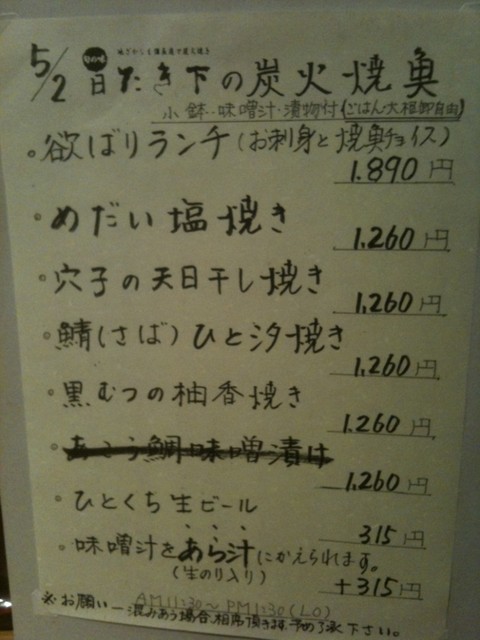 5/2 旬の味 日たき下の炭火焼魚
小鉢・味噌汁・漬物付(ごはん・大根卸自由)
欲ばりランチ(お刺身と焼魚チョイス)
1.890円
めだい塩焼き
1.260円
穴子の天日干し焼き
1.260円
鯖(さば)ひと汐焼き
1.260円
黒むつの柚香焼き
1.260円
あこう鯛味噌漬け
1.260円
ひとくち生ビール
315円
味噌汁をあら汁にかえられます。
(生のり入り)
+315円
AM11:30〜PM1:30(LO)
※お願い―混みあう場合、相席頂きます。予めご了承下さい。